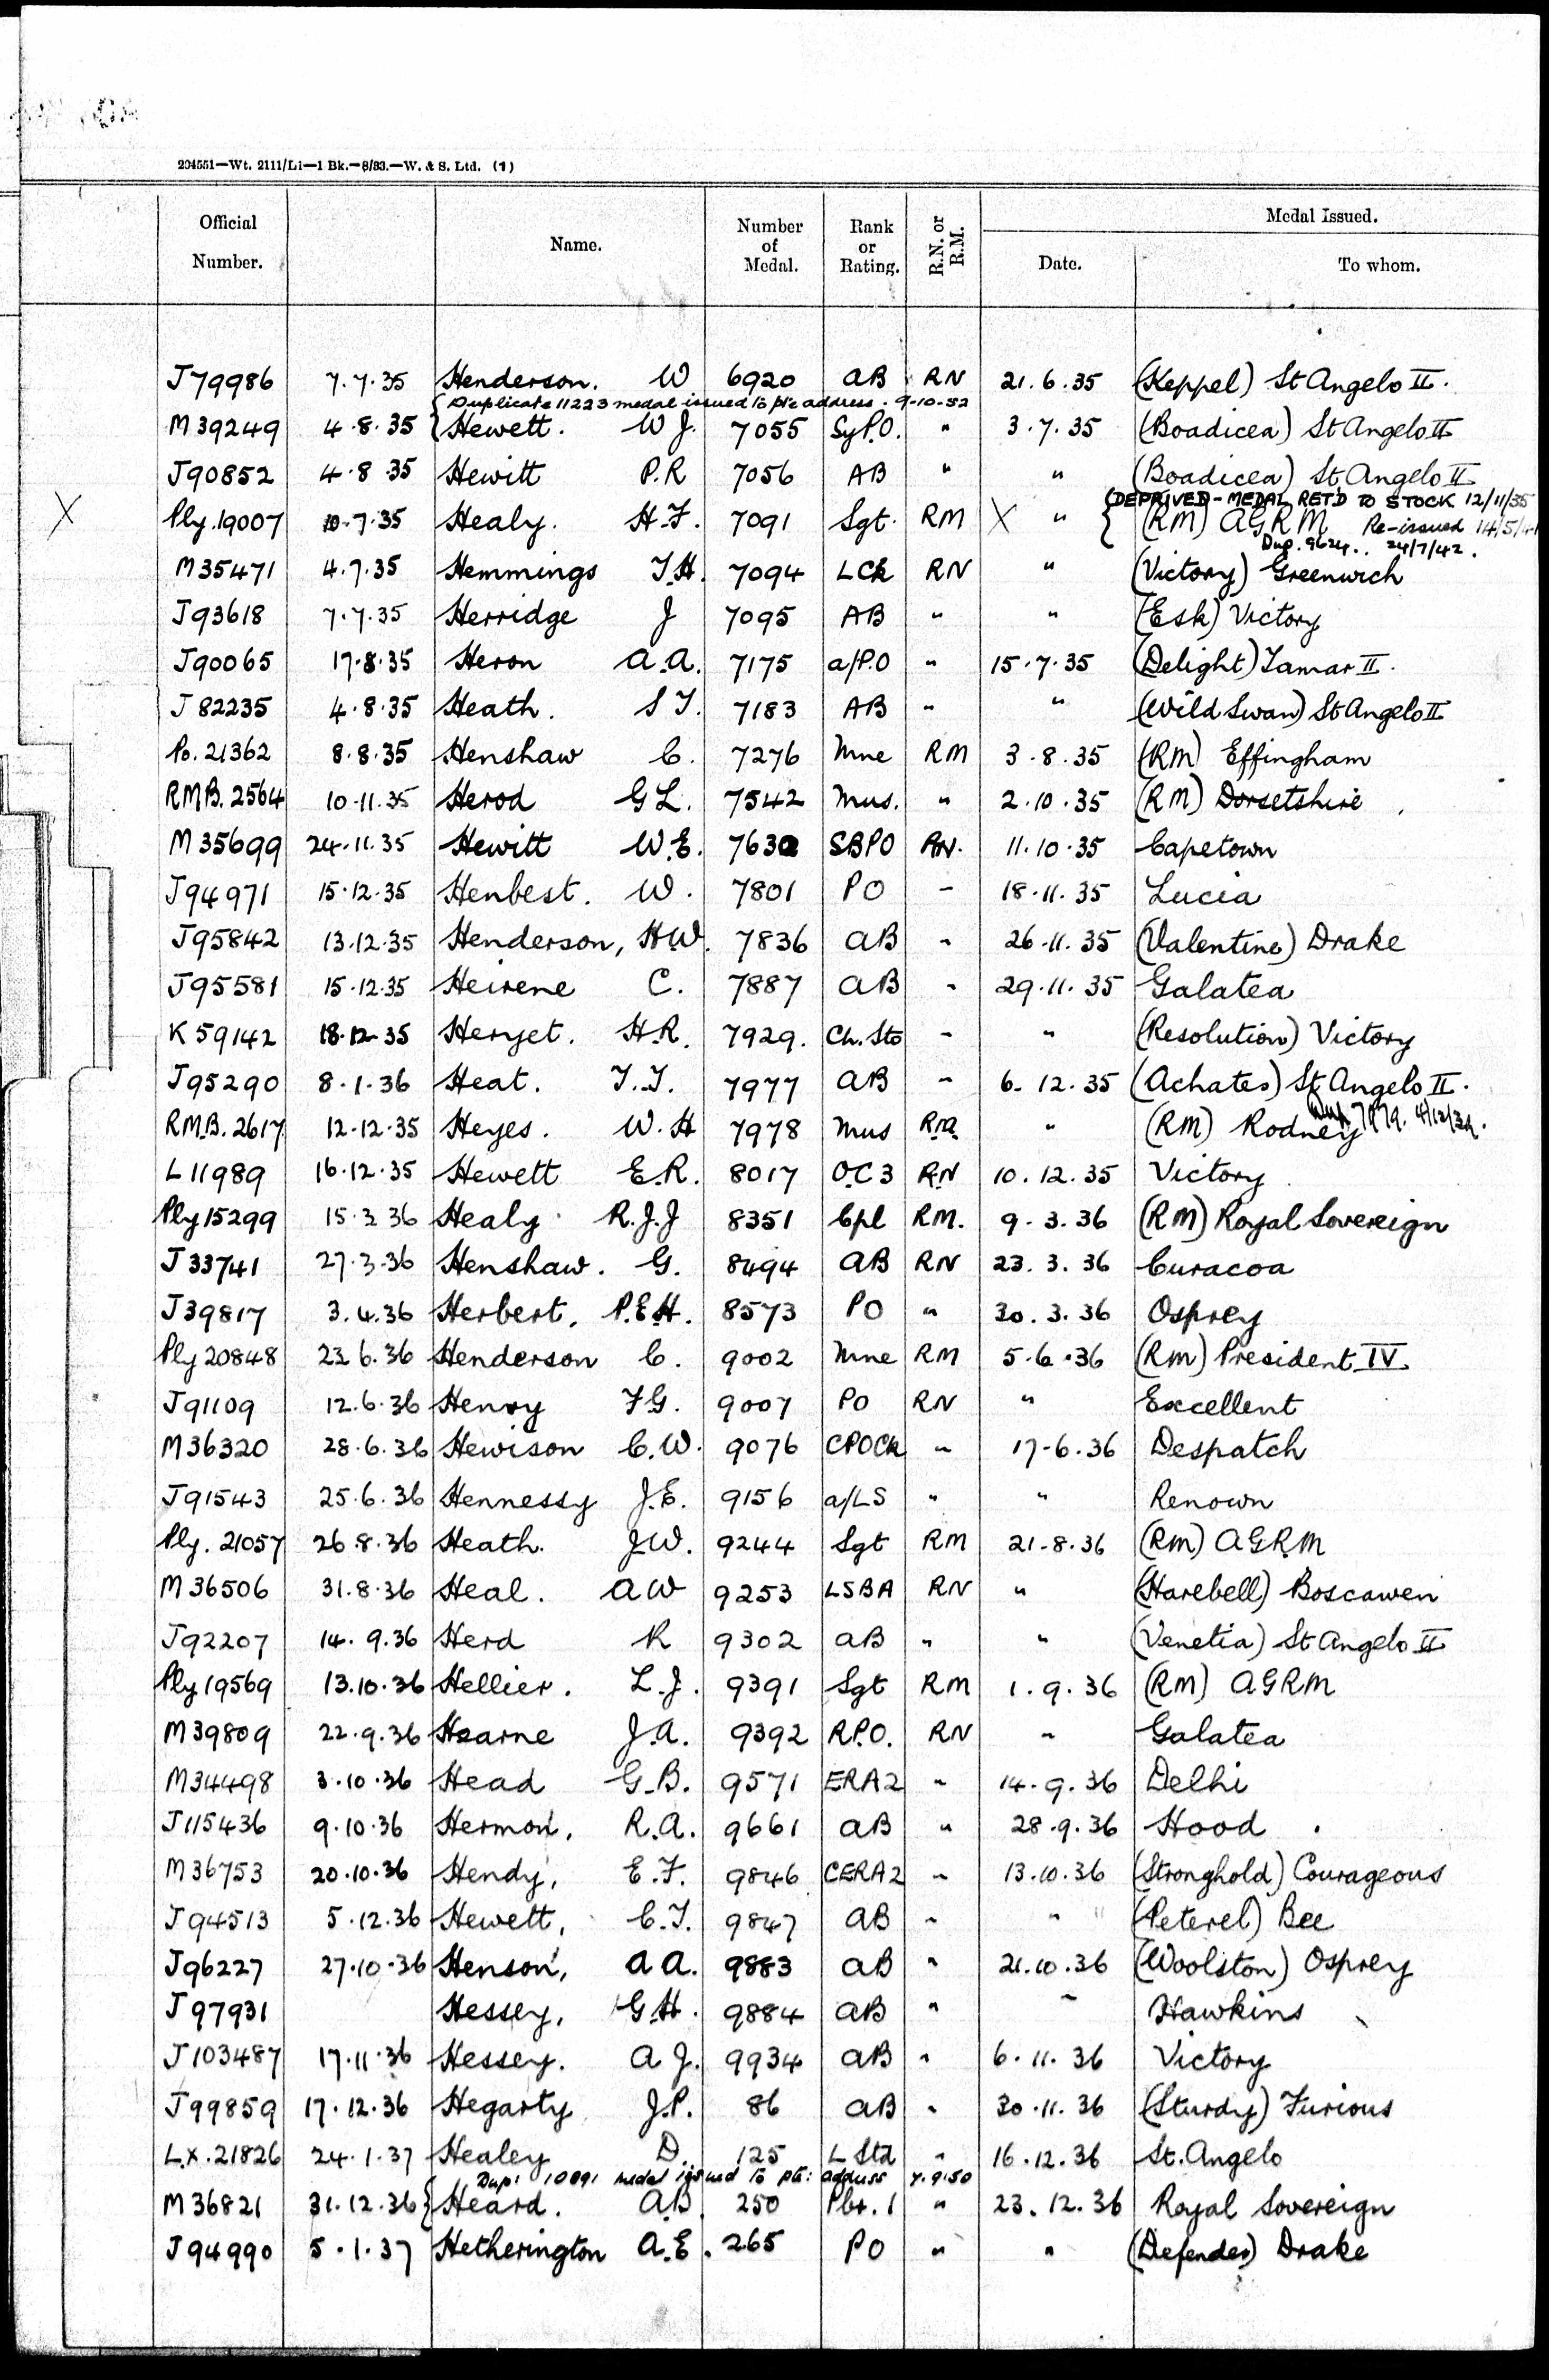 204551—Wt. 2111/Li—1 Bk.—8/33.—W. & S. Ltd. (1)
Official Number. Name. Number of Medal. Rank or Rating. R.N. or R.M. Medal Issued.
Date. To whom.
J79986 7.7.35 Henderson. W 6920 AB RN 21.6.35 (Keppel) St Angelo II.
Duplicate 11223 medal issued to pte address. 9-10-52
M39249 4.8.35 Hewett. W J. 7055 SyP.O. " 3.7.35 (Boadicea) St Angelo II
J90852 4.8.35 Hewitt P.R 7056 AB " " (Boadicea) St Angelo II
(DEPRIVED - MEDAL RET'D TO STOCK 12/11/35
X Ply.19007 10.7.35 Healy. H.F. 7091 Sgt. RM X " (RM) AGRM Re-issued 14/5/
Dup. 9624.. 24/7/42.
M35471 4.7.35 Hemmings T.H. 7094 LCk RN " (Victory) Greenwich
J93618 7.7.35 Herridge J 7095 AB " " (Esk) Victory
J90065 17.8.35 Heron A.A. 7175 a/P.O " 15.7.35 (Delight) Tamar II.
J 82235 4.8.35 Heath. S T. 7183 AB " " (Wild Swan) St Angelo II
Po.21362 8.8.35 Henshaw C. 7276 Mne RM 3.8.35 (RM) Effingham
RMB.2564 10.11.35 Herod G L. 7542 Mus. " 2.10.35 (RM) Dorsetshire
M35699 24.11.35 Hewitt W.E. 7632 SBPO RN. 11.10.35 Capetown
J94971 15.12.35 Henbest. W. 7801 PO - 18.11.35 Lucia
J95842 13.12.35 Henderson, H.W. 7836 AB " 26.11.35 (Valentine) Drake
J95581 15.12.35 Heirene C. 7887 AB " 29.11.35 Galatea
K 59142 18.12.35 Heryet. H.R. 7929. Ch.Sto - " (Resolution) Victory
J95290 8.1.36 Heat. T.T. 7977 AB - 6.12.35 (Achates) St Angelo II.
RMB.2617 12.12.35 Heyes. W.H 7978 Mus RM " (RM) Rodney Dup 7879.
L11989 16.12.35 Hewett E.R. 8017 O.C 3 RN 10.12.35 Victory
Ply 15299 15.3 36 Healy R.J.J 8351 Cpl RM. 9.3.36 (RM) Royal Sovereign
J 33741 27.3.36 Henshaw. G. 8494 AB RN 23.3.36 Curacoa
J39817 3.4.36 Herbert, P.E.H. 8573 PO " 30.3.36 Osprey
Ply 20848 22 6.36 Henderson C. 9002 Mne RM 5.6.36 (RM) President IV
J91109 12.6.36 Henry F.G. 9007 PO RN " Excellent
M36320 28.6.36 Hewison C.W. 9076 CPOCk " 17-6.36 Despatch
J91543 25.6.36 Hennessy J.E. 9156 a/LS " " Renown
Ply.21057 26.8.36 Heath. J.W. 9244 Sgt RM 21.8.36 (RM) AGRM
M36506 31.8.36 Heal. A W 9253 LSBA RN " (Harebell) Boscawen
J92207 14.9.36 Herd R 9302 AB " " (Venetia) St Angelo II
Ply 19569 13.10.36 Hellier. L.J. 9391 Sgt RM 1.9.36 (RM) AGRM
M39809 22.9.36 Hearne J.A. 9392 R.P.O. RN " Galatea
M34498 3.10.36 Head G.B. 9571 ERA2 " 14.9.36 Delhi
J115436 9.10.36 Hermon, R.A. 9661 AB " 28.9.36 Hood
M36753 20.10.36 Hendy, E.F. 9846 CERA2 " 13.10.36 (Stronghold) Courageous
J94513 5.12.36 Hewett, C.T. 9847 AB " " (Peterel) Bee
J96227 27.10.36 Henson, A A. 9883 AB " 21.10.36 (Woolston) Osprey
J97931 Hessey, G.H. 9884 AB " " Hawkins
J103487 17.11.36 Hessey. A J. 9934 AB " 6.11.36 Victory
J99859 17.12.36 Hegarty J.P. 86 AB " 30.11.36 (Sturdy) Furious
L.X.21826 24.1.37 Healey D. 125 L Std " 16.12.36 St.Angelo
Dup: 10891 medal issued to pte: address 7.9.50
M36821 31.12.36 Heard. A.B 250 Plbr.1 " 23.12.36 Royal Sovereign
J94990 5.1.37 Hetherington A.E. 265 PO " " (Defender) Drake